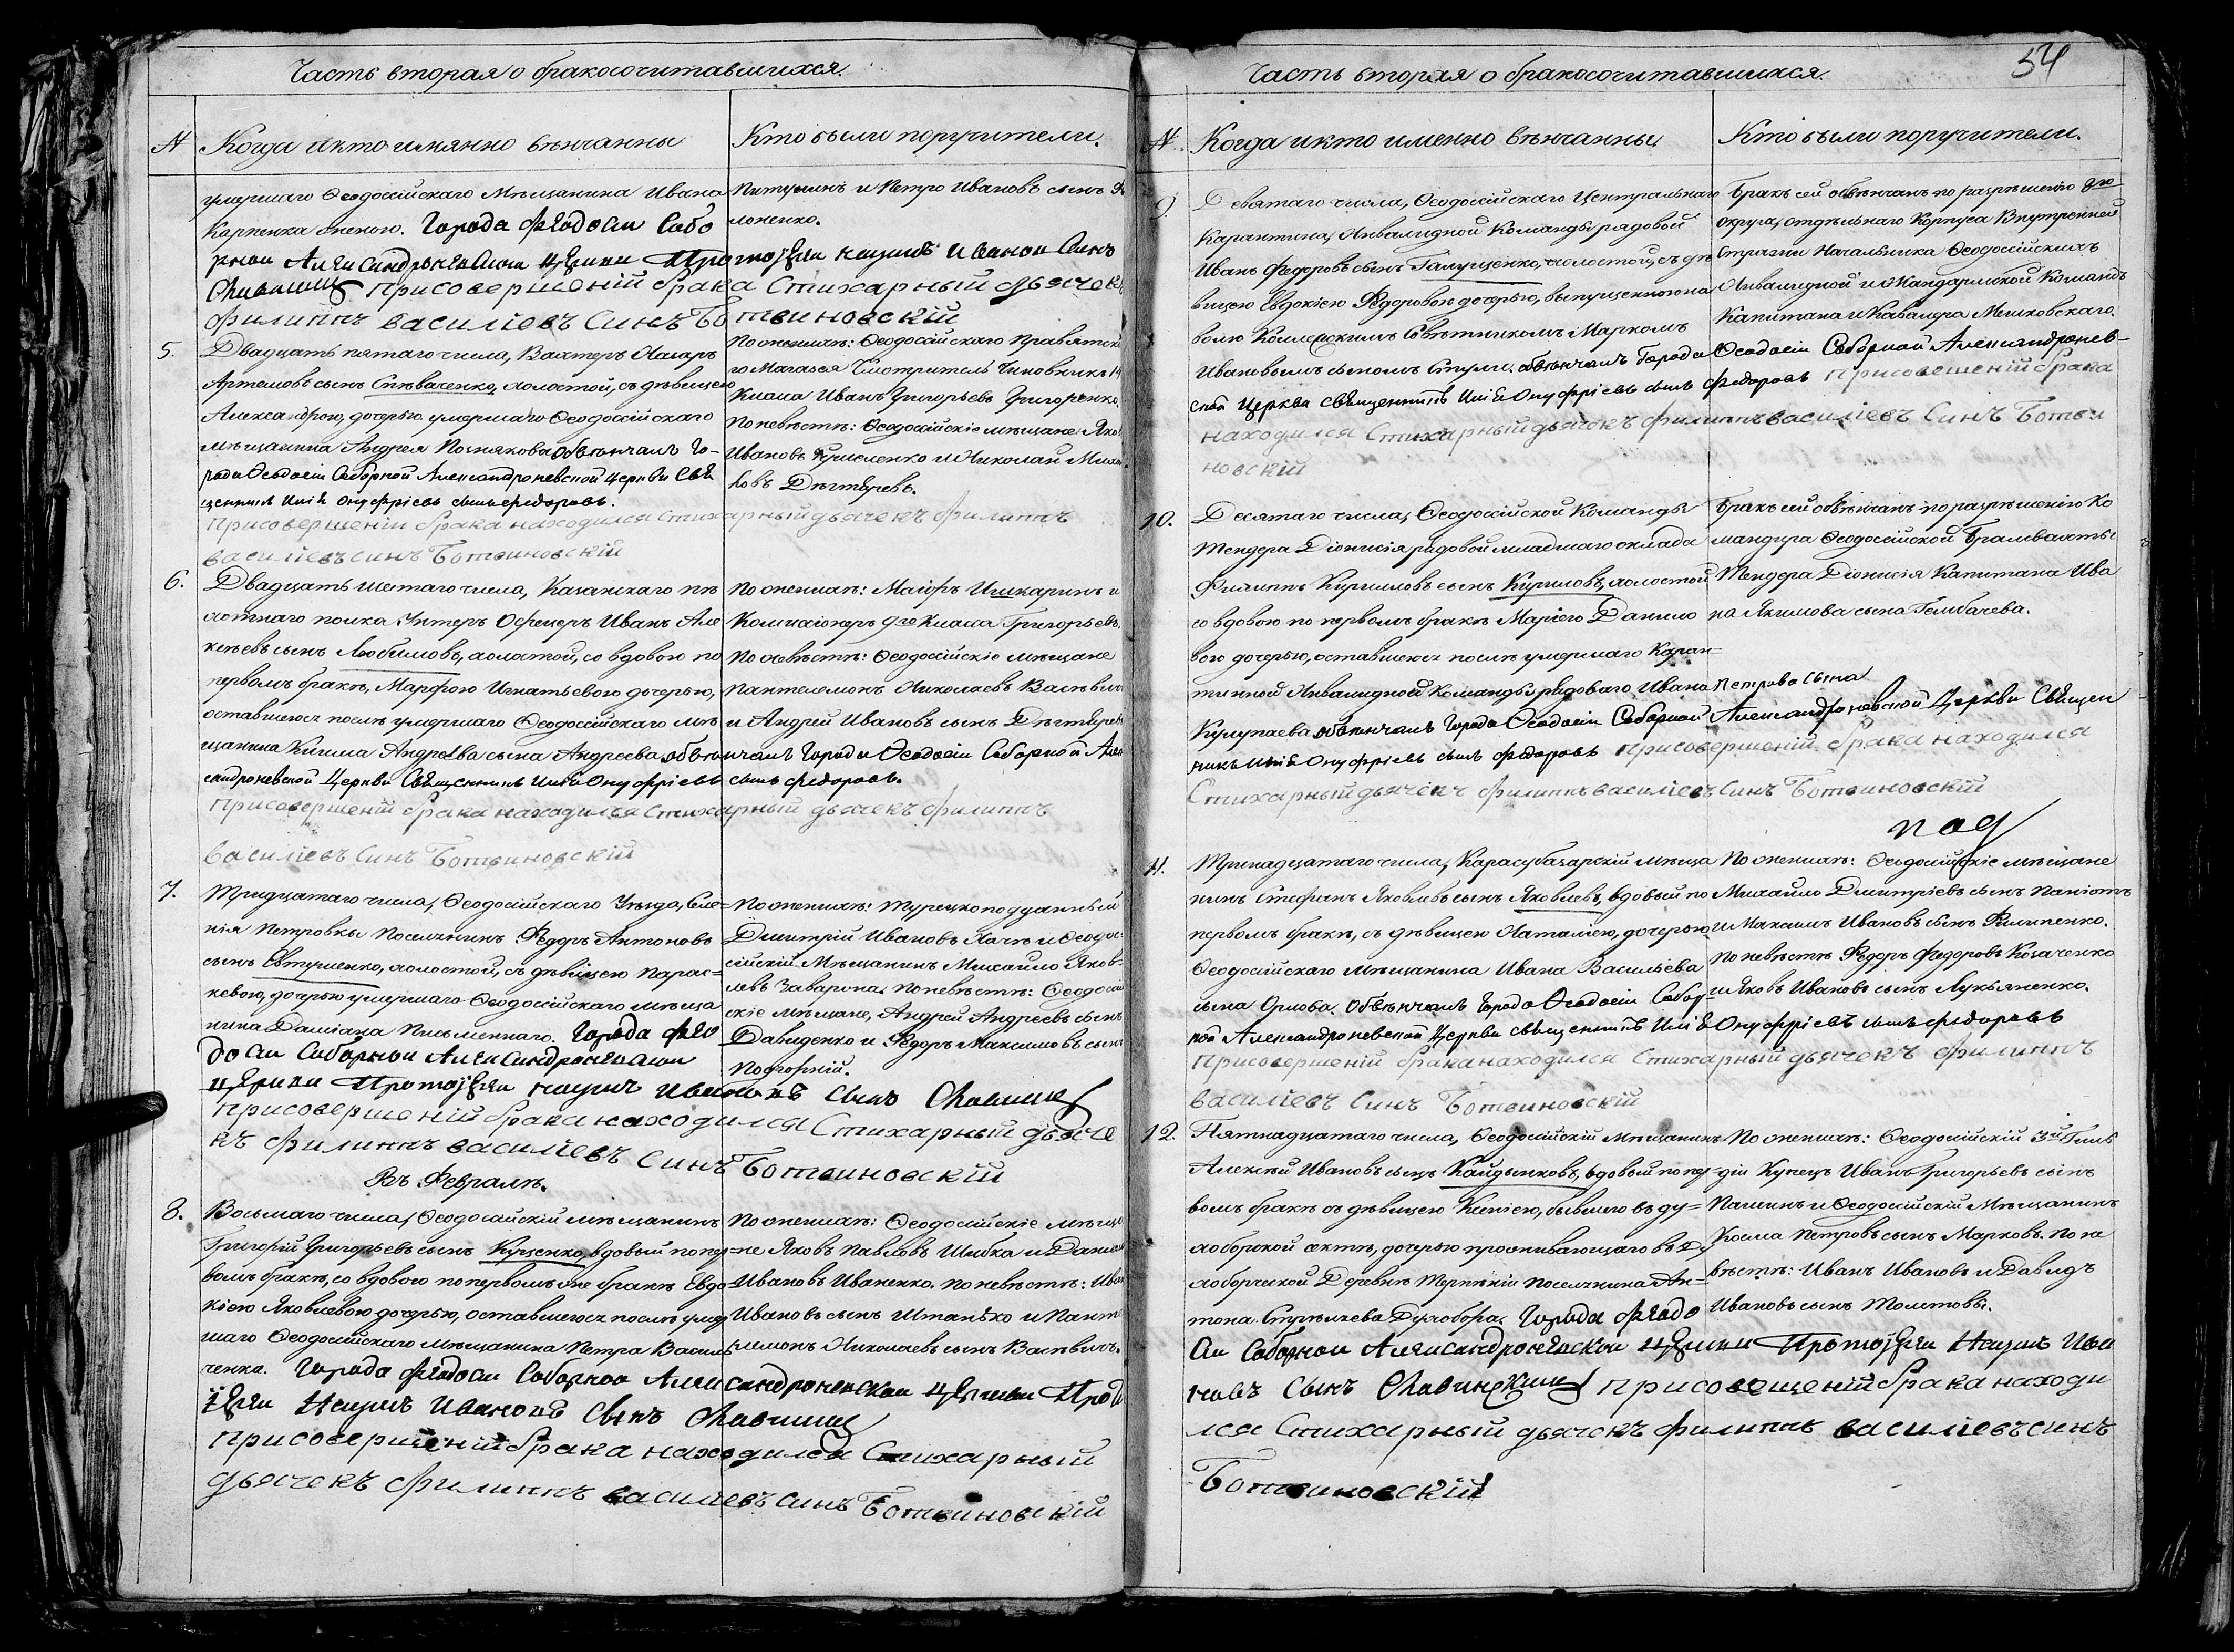 Часть вторая о бракосочитавшихся.
N
Когда и кто имянно вѣнчанны
Кто были поручители.
умершаго Ѳеодосійскаго Мѣщанина Ивана
Карпенка женою. Города Феодоси Собо
рнои Александроневскои церкви Протоіереи Наумъ Иванои Синъ
присовершеній брака Стихарный дьячек
филиппъ василіевъ Синъ Ботвиновскій
и Петро Ивановъ сынъ
5.
Двадцать пятаго числа, Вахтеръ Лазарь
Артемовъ сынъ Спеваченко, холостой, съ дѣвицею
Александрою, дочерью умершаго Ѳеодосійскаго
мѣщанина Андрея Познякова обвѣнчалъ Го-
рода Ѳеодосіи Соборной Александроневской церкви Свя
щенникъ Илія Онуфріевъ сынъ федоровъ.
присовершеніи брака находился Стихарный дьячекъ филиппъ
василіевъ синъ Ботвиновскій
По женихѣ: Ѳеодосійскаго Правіятско
го Магазея Смотритель Чиновникъ 14
Класа Иванъ Григорьевъ Григоренко.
По невѣстѣ: Ѳеодосійскіе мѣщане Яко
Ивановъ Кужеленко и Николай Михаи
ловъ Дѣгтяревъ.
6.
Двадцать шестаго числа, Казанскаго пѣ
хотнаго полка Унтеръ Офецеръ Иванъ Але
ксѣевъ сынъ Любимовъ, холостой, со вдовою по
первомъ бракѣ, Марфою Игнатьевою дочерью,
оставшеюся послѣ умершаго Ѳеодосійскаго мѣ
щанина Кирила Андреева сына Андреева обвѣнчалъ Города Ѳеодосіи Соборной Алек
сандроневской Церкви Священникъ Илія Онуфріевъ сынъ федоровъ.
присовершеній брака находился Стихарный дьячекъ филиппъ
василіевъ Синъ Ботвиновскій
По женихѣ: Маіоръ Ишкаринъ и
Комисіонеръ 9го Класса Григорьевъ.
По невѣстѣ: Ѳеодосійскіе мѣщане
Пантелемонъ Николаевъ Васѣвичь
и Андрей Ивановъ сынъ Дѣгтяревъ
7.
Тридцатаго числа, Ѳеодосійскаго Уѣзда, Селе=
нія Петровки Поселянинъ Ѳедоръ Антоновъ
сынъ Евтушенко, холостой, съ дѣвицею Парас=
кевою, дочерью умершаго Ѳеодосійскаго мѣща
нина Даміана Письменнаго. Города Фео
доси Соборнои Александроневскои
церкви Протоіереи Наумъ Ивановъ Сынъ
присовершеній брака находился Стихарный дьяче
къ филиппъ василіевъ синъ Ботвиновскій
По женихѣ: Турецкоподданный
Дмитрій Ивановъ Хаче и Ѳеодос=
сійскій Мѣщанинъ Михайло Яков=
левъ Заварока. По невѣстѣ: Ѳеодосій
скіе мѣщане, Андрей Андреевъ сынъ
Давиденко и Ѳедоръ Максимовъ сынъ
Подгорній.
Въ Февралѣ.
8.
Восьмаго числа, Ѳеодосійскій мѣщанинъ
Григорій Григорьевъ сынъ Куценко, вдовый по пер=
вомъ бракѣ, со вдовою по первомъ же бракѣ Евдо=
кіею Яковлевою дочерью, оставшеюся послѣ умер
шаго Ѳеодосійскаго Мѣщанина Петра Василь
ченка. Города Феодоси Соборнои Александроневскои церкви Прото
іереи Наумъ Ивановъ Сынъ
присовершеній брака находился Стихарный
дьячекъ филиппъ василіевъ синъ Ботвиновскій
По женихѣ: Ѳеодосійскіе мѣща
не Яковъ Павловъ Шибка и Данило
Ивановъ Иваненко. По невѣстѣ: Иван
Ивановъ сынъ Штанько и Панте
лемонъ Николаевъ сынъ Васѣвичъ.
54
Часть вторая о бракосочитавшихся.
N.
Когда и кто именно вѣнчанны
Кто были поручители.
9.
Девятаго числа, Ѳеодосійскаго Центральнаго
Карантина, Инвалидной Команды рядовой
Иванъ Федоровъ сынъ Галущенко, холостой, съ дѣ
вицею Евдокіею Ѳедоровою дочерью, выпущенною на
волю Коллежскимъ Совѣтникомъ Маркомъ
Ивановымъ сыномъ Стули. обвѣнчалъ Города Ѳеодосіи Соборной Александронев-
ской Церкви священникъ Илія Онуфріевъ сынъ федоровъ присовешеній брака
находился Стихарный дьячекъ филиппъ василіевъ Синъ Ботви
новскій
Бракъ сей обвѣнчанъ по разрѣшенію
округа, отдѣльнаго Корпуса Внутренней
Стражи Начальника Ѳеодосійскихъ
Инвалидной и Жандармской Командъ
Капитана и Кавалера Мешковскаго.
10.
Десятаго числа, Ѳеодосійской Команды
Тендера Діонисія рядовой младшаго оклада
Филиппъ Кириловъ сынъ Кириловъ, холостой
со вдовою по первомъ бракѣ Маріею Данило
вою дочерью, оставшеюся послѣ умершаго Каран=
тинной Инвалидной Команды рядоваго Ивана Петрова сына
Кулупаева обвѣнчалъ Города Ѳеодосіи Соборной Александроневской Церкви Священ
никъ Илія Онуфріевъ сынъ федоровъ присовершеній брака находился
Стихарный дьячекъ филиппъ василіевъ Синъ Ботвиновскій
Бракъ сей обвѣнчанъ по разрѣшенію Ко
мандира Ѳеодосійской Брамвахты
Тендера Діонисія Капитана Ива
на Якимова сына Гембачева.
11.
Тринадцатаго числа, Карасубазарскій мѣща
нинъ Стефанъ Яковлевъ сынъ Яковлевъ, вдовый по
первомъ бракѣ, съ дѣвицею Наталіею, дочерью
Ѳеодосійскаго мѣщанина Ивана Васильева
сына Орлова. Обвѣнчалъ Города Ѳеодосіи Собор-
ной Александроневской Церкви священникъ Илія Онуфріевъ сынъ федоровъ
присовершеній брака находился Стихарный дьячекъ филиппъ
василіевъ Синъ Ботвиновскій
По женихѣ: Ѳеодосійскіе мѣщане
Михайло Дмитріевъ сынъ Паніотъ
и Максимъ Ивановъ сынъ Филипенко.
По невѣстѣ Ѳедоръ Федоровъ Козаченко
и Яковъ Ивановъ сынъ Лукьяненко.
12.
Пятнадцатаго числа, Ѳеодосійскій Мѣщанинъ
Алексѣй Ивановъ сынъ Кайдынковъ, вдовый по пер=
вомъ бракѣ съ дѣвицею Ксеніею, бывшею въ ду=
хоборской сектѣ, дочерью проживающаго въ Ду
хоборческой Деревнѣ Терпѣніи поселянина Ан=
тона Стрѣлчева Духобора. Города Феодо
си Соборнои Александроневскои церкви Протоіереи Наумъ Ива
новъ Сынъ присовещеній брака находи
лся Стихарный дьячекъ филиппъ василіевъ синъ
Ботвиновскій
По женихѣ: Ѳеодосійскій 3й Гиль
діи Купецъ Иванъ Григорьевъ сынъ
Пашинъ и Ѳеодосійскій Мѣщанинъ
Косма Петровъ сынъ Марковъ. По не
вѣстѣ: Иванъ Ивановъ и Давидъ
Ивановъ сынъ Толстовы.